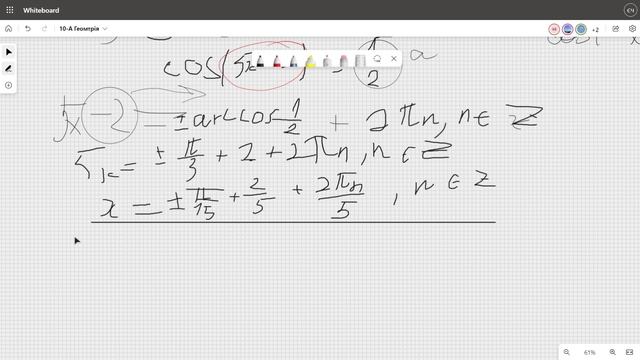 Whiteboard
СЧ
10-А Геометрія
+2
cos(5x ) = 1/2 a
5x - 2 = ± arccos 1/2 + 2πn, n ∈ Z
5x = ± π/3 + 2 + 2πn, n ∈ Z
x = ± π/15 + 2/5 + 2πn/5 , n ∈ Z
61%